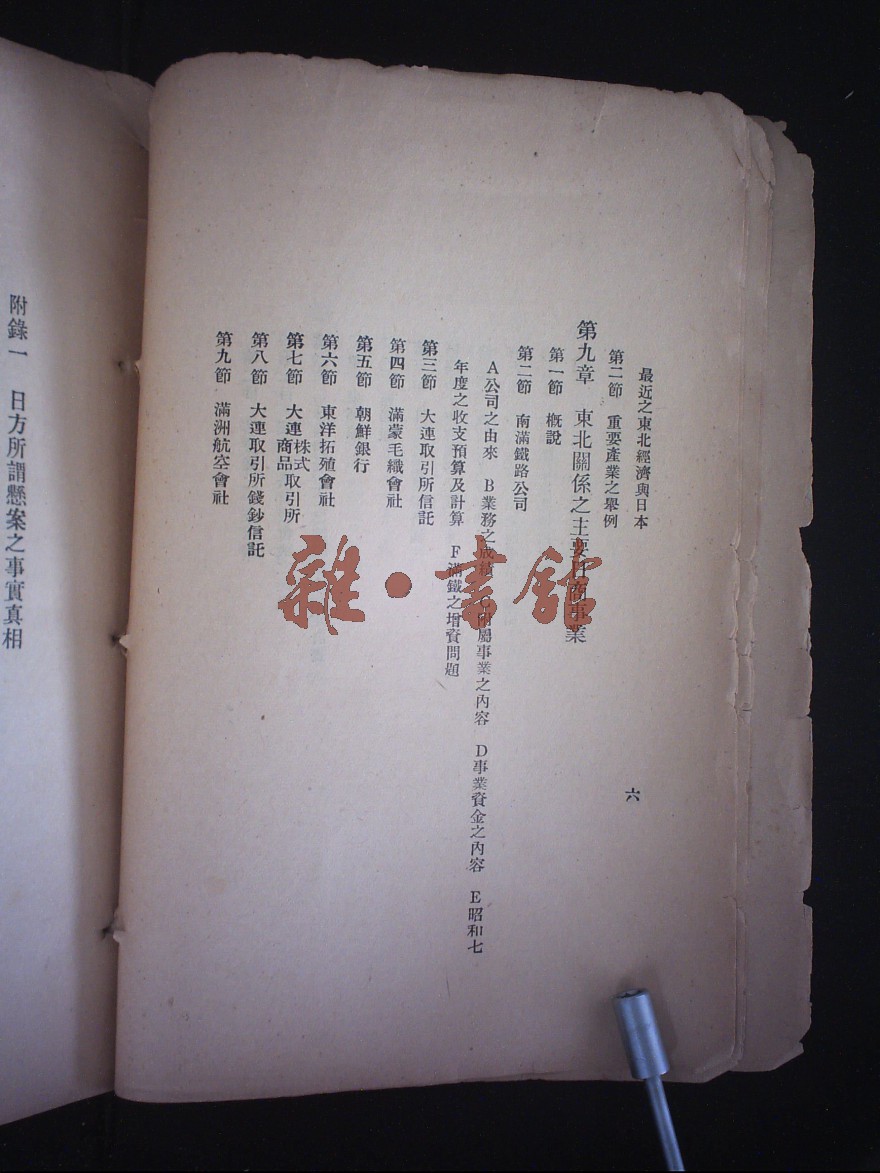 最近之東北經濟與日本
六
第二節 重要產業之舉例
第九章 東北關係之主要日商事業
第一節 槪說
第二節 南滿鐵路公司
A公司之由來 B業務之成績 C附屬事業之內容 D事業資金之內容 E昭和七
年度之收支預算及計算 F滿鐵之增資問題
第三節 大連取引所信託
第四節 滿蒙毛織會社
第五節 朝鮮銀行
第六節 東洋拓殖會社
第七節 大連株式商品取引所
第八節 大連取引所錢鈔信託
第九節 滿洲航空會社
附錄一 日方所謂懸案之事實眞相
雜·書館